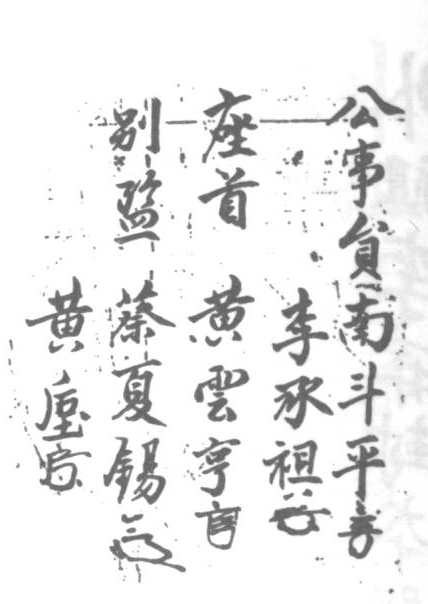 公事員南斗平
李承祖
座首 黄雲亨
別監 蔡夏錫
黄